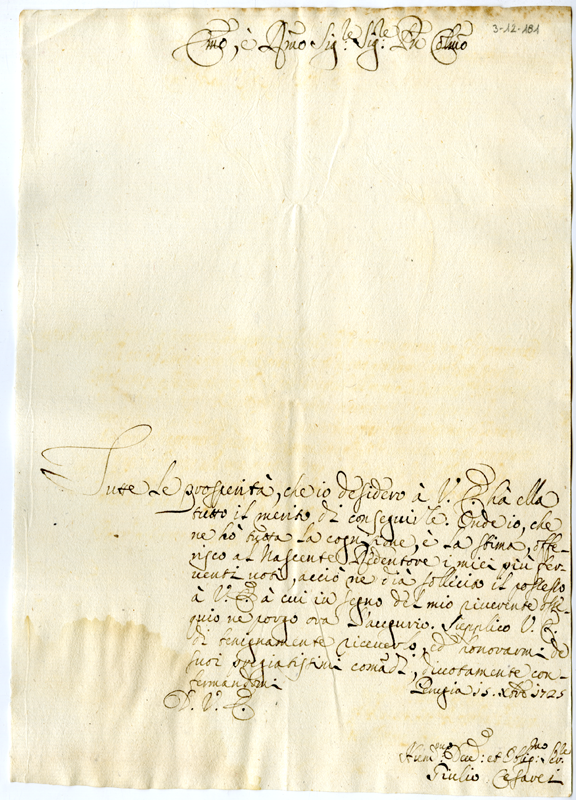 3-12-181
Emo, è Rmo Sigre Sigre Pñ Colmo
Tutte le prosperità, che io desidero à V. E. hà ella
tutto il merito di conseguirle. Onde io, che
ne hò tutta la cognizione, è la stima, offe-
risco al Nascente Redentore i miei più fer-
venti voti, acciò ne dia sollicito il possesso
à V. E. à cui in segno del mio riverente osse-
quio ne porgo ora l'augurio. Supplico V. E.
di benignamente riceverlo, ed honorarmi de
suoi pregiatissimi comãdi, divotamente con-
fermandomi
Perugia 15. Xbre 1725
D. V. E.
Hummo Devo: et Obligmo Serre
Giulio Cesarei